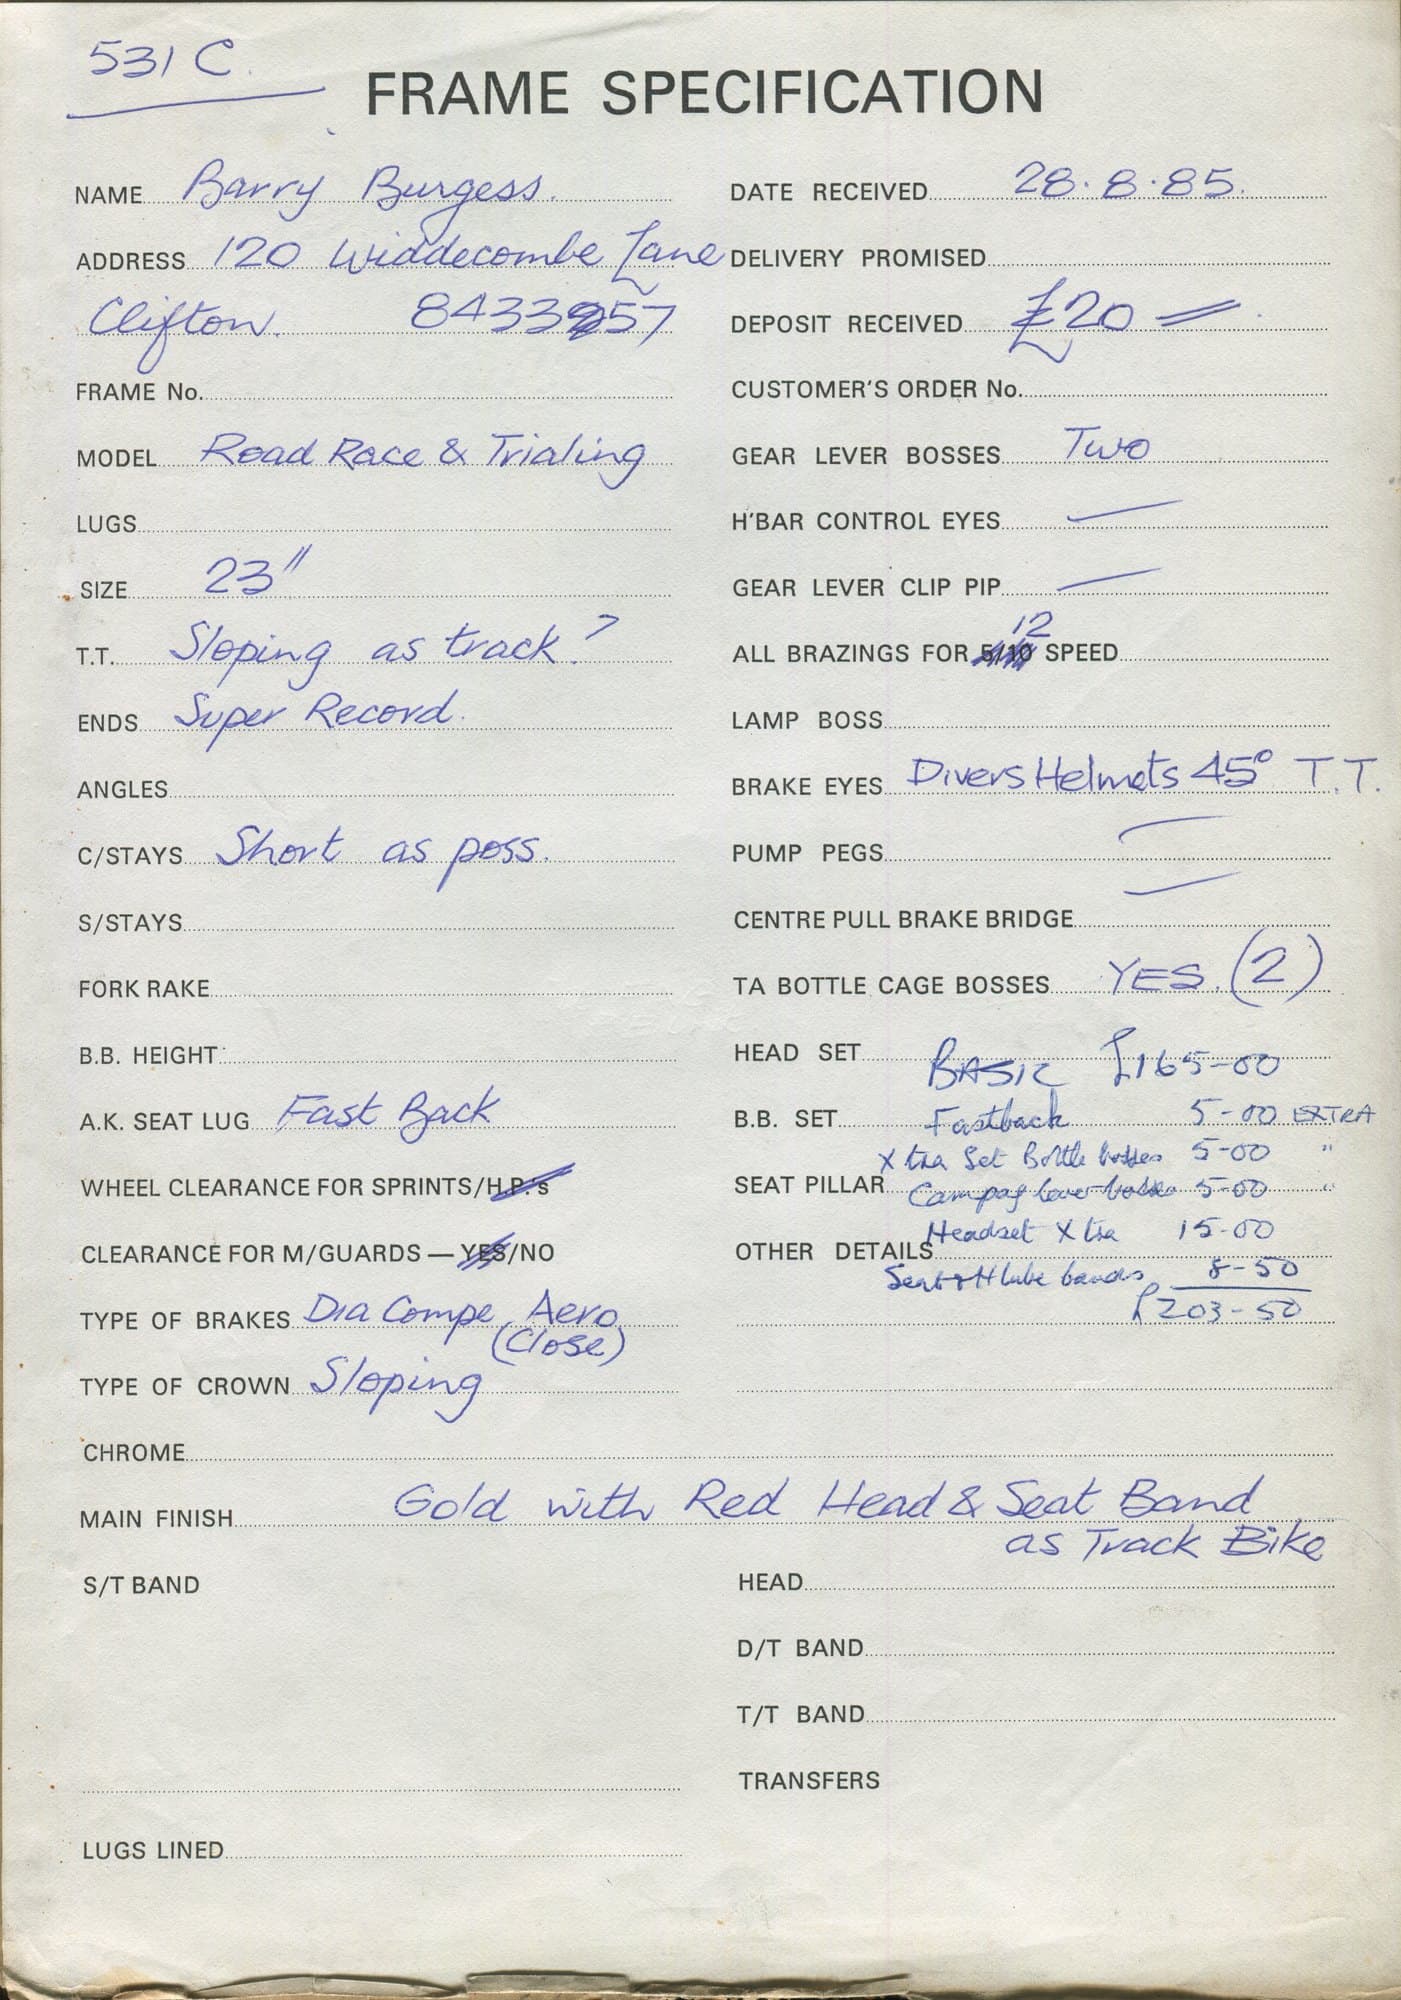 531 C.
FRAME SPECIFICATION
NAME Barry Burgess.
ADDRESS 120 Widdecombe Lane
Clifton. 8433957
FRAME No.
MODEL Road Race & Trialing
LUGS
SIZE 23"
T.T. Sloping as track?
ENDS Super Record.
ANGLES
C/STAYS Short as poss.
S/STAYS
FORK RAKE
B.B. HEIGHT
A.K. SEAT LUG Fast Back
WHEEL CLEARANCE FOR SPRINTS/H.P.'s
CLEARANCE FOR M/GUARDS — YES/NO
TYPE OF BRAKES Dia Compe Aero
(Close)
TYPE OF CROWN Sloping
DATE RECEIVED 28.8.85.
DELIVERY PROMISED
DEPOSIT RECEIVED £20 =
CUSTOMER'S ORDER No.
GEAR LEVER BOSSES Two
H'BAR CONTROL EYES —
GEAR LEVER CLIP PIP —
12
ALL BRAZINGS FOR 5/10 SPEED
LAMP BOSS
BRAKE EYES Divers Helmets 45° T.T.
PUMP PEGS —
CENTRE PULL BRAKE BRIDGE —
TA BOTTLE CAGE BOSSES YES. (2)
HEAD SET BASIC £165-00
B.B. SET Fastback 5-00 EXTRA
Xtra Set Bottle bosses 5-00 "
SEAT PILLAR Campag lever bosses 5-00 "
Headset Xtra 15-00
OTHER DETAILS
Seat & H tube bands 8-50
£203-50
CHROME
MAIN FINISH Gold with Red Head & Seat Band
as Track Bike
S/T BAND
HEAD
D/T BAND
T/T BAND
TRANSFERS
LUGS LINED